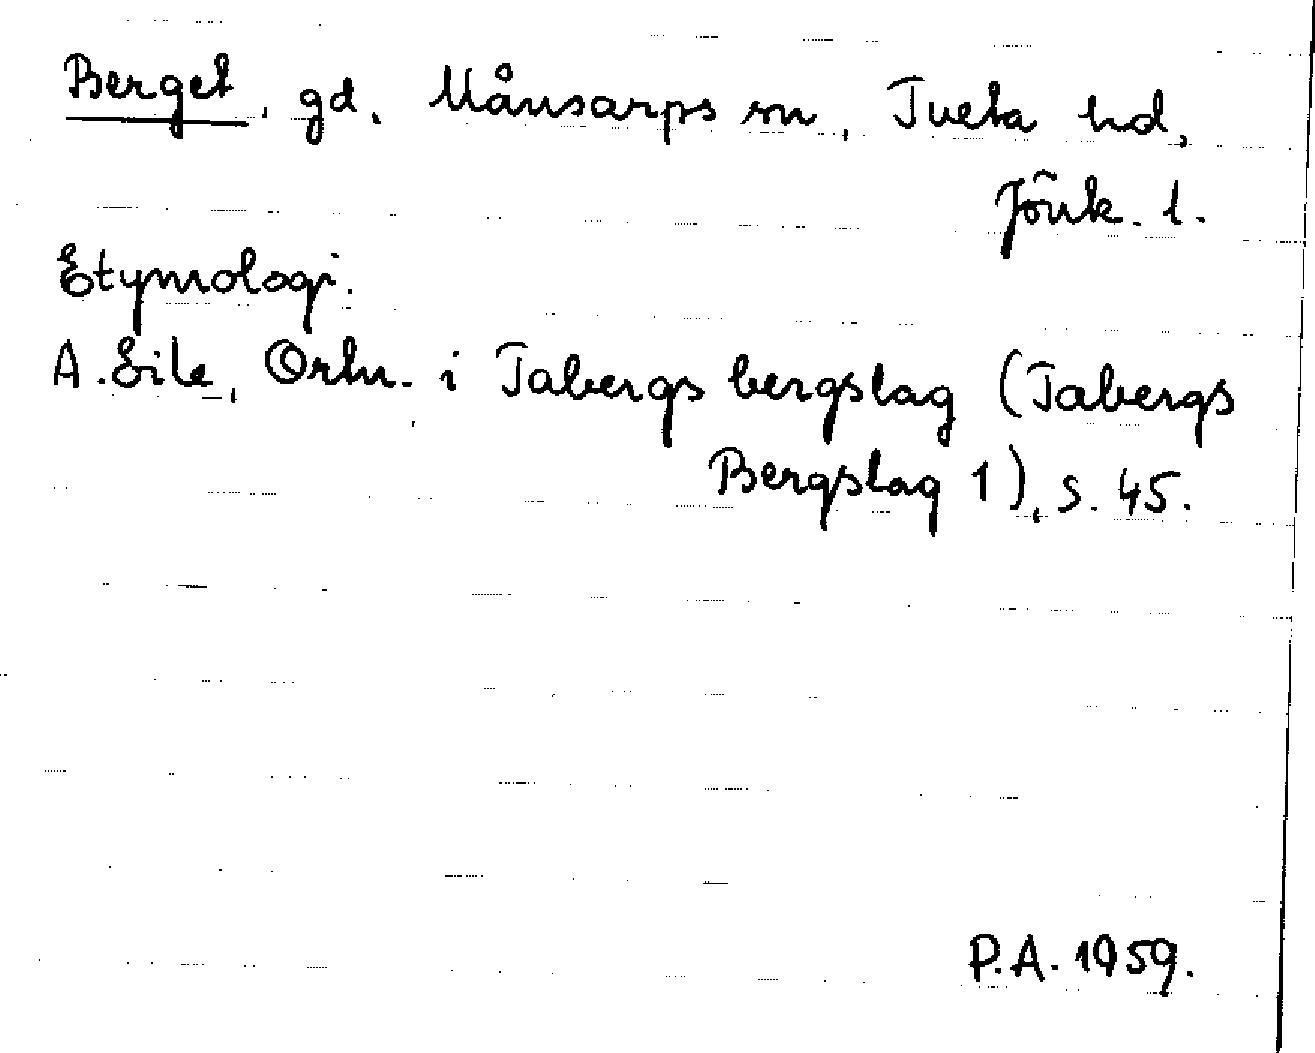 Berget, gd, Månsarps sn, Tveta hd,
Jönk. l.
Etymologi.
A. Eile, Ortn. i Tabergs bergslag (Tabergs
Bergslag 1), s. 45.
P.A. 1959.